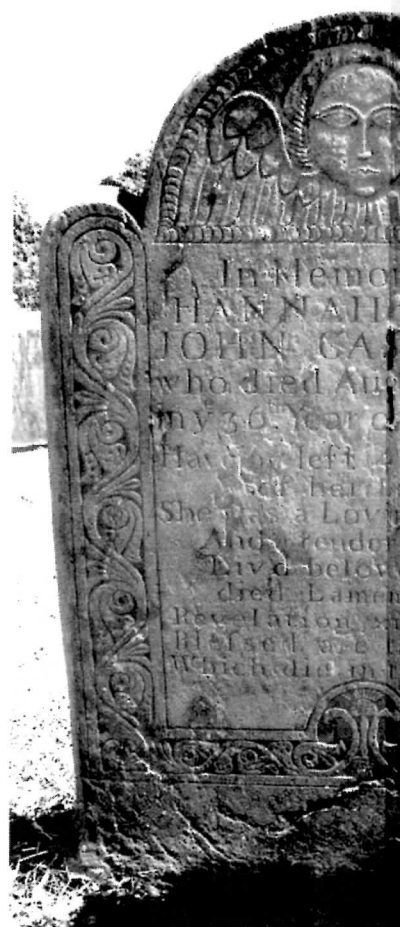 In Memor
HANNAH
JOHN GA
who died Au
in y 36. Year o
Have left
of her
She was a Lovi
And tender
Liv'd belov
died Lamen
Revelation
Blessed are t
Which die in t